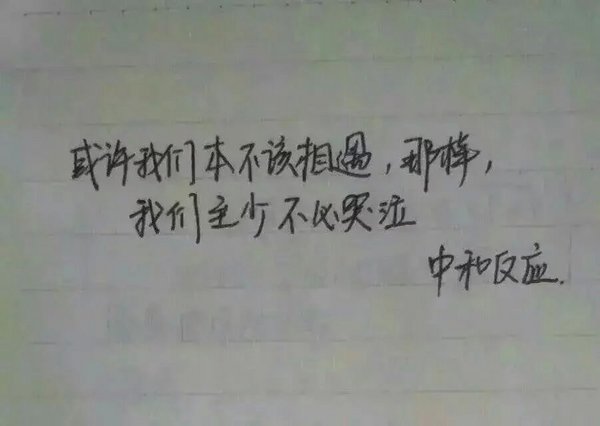 或许我们本不该相遇,那样,
我们至少不必哭泣
中和反应.